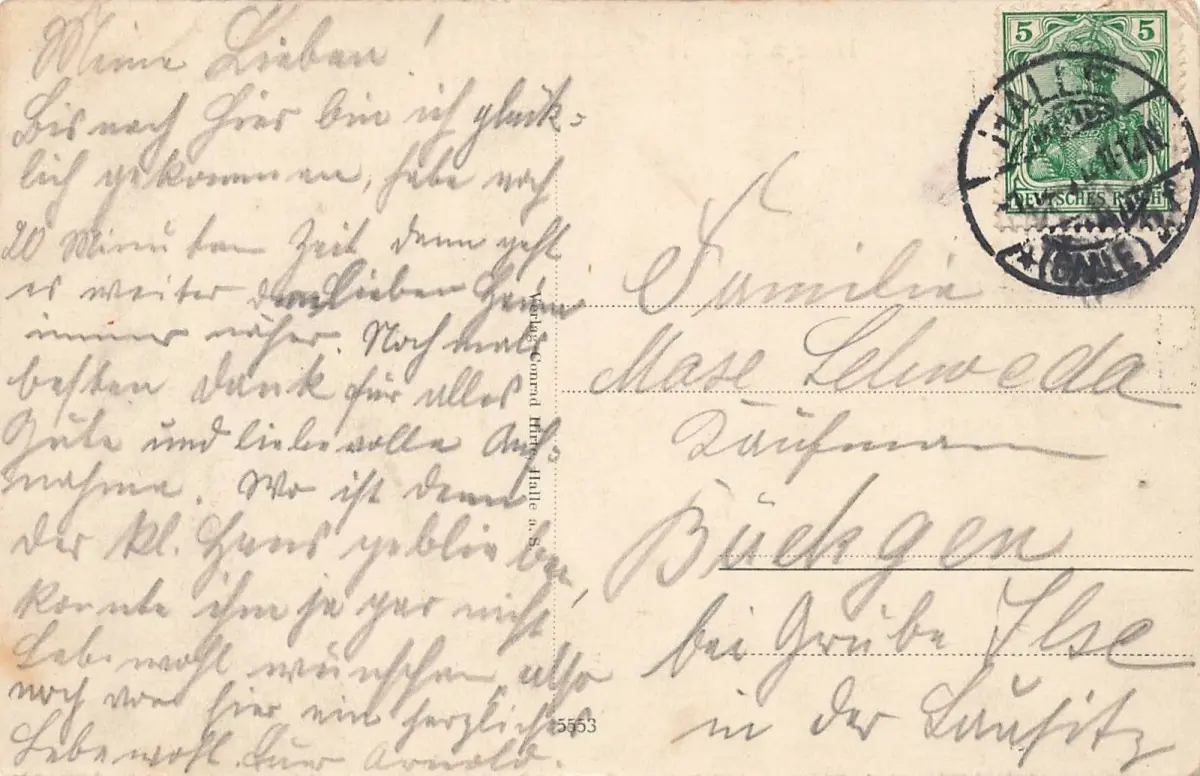 Meine Lieben!
Bis nach hier bin ich glück-
lich gekommen, habe noch
20 Minuten Zeit dann geht
es weiter dem lieben Heim
immer näher. Noch mals
besten Dank für alles
Gute und liebevolle Auf-
nahme. Wo ist denn
der kl. Hans geblieben,
konnte ihm ja gar nicht
Lebewohl wünschen, also
noch von hier ein herzliches
Lebewohl. Euer Arnold.
Verlag Conrad Hirte, Halle a. S.
5553
5 5
DEUTSCHES REICH
HALLE
(SAALE)
Familie
Mase Schweda
Kaufmann
Bückgen
bei Grube Ilse
in der Lausitz